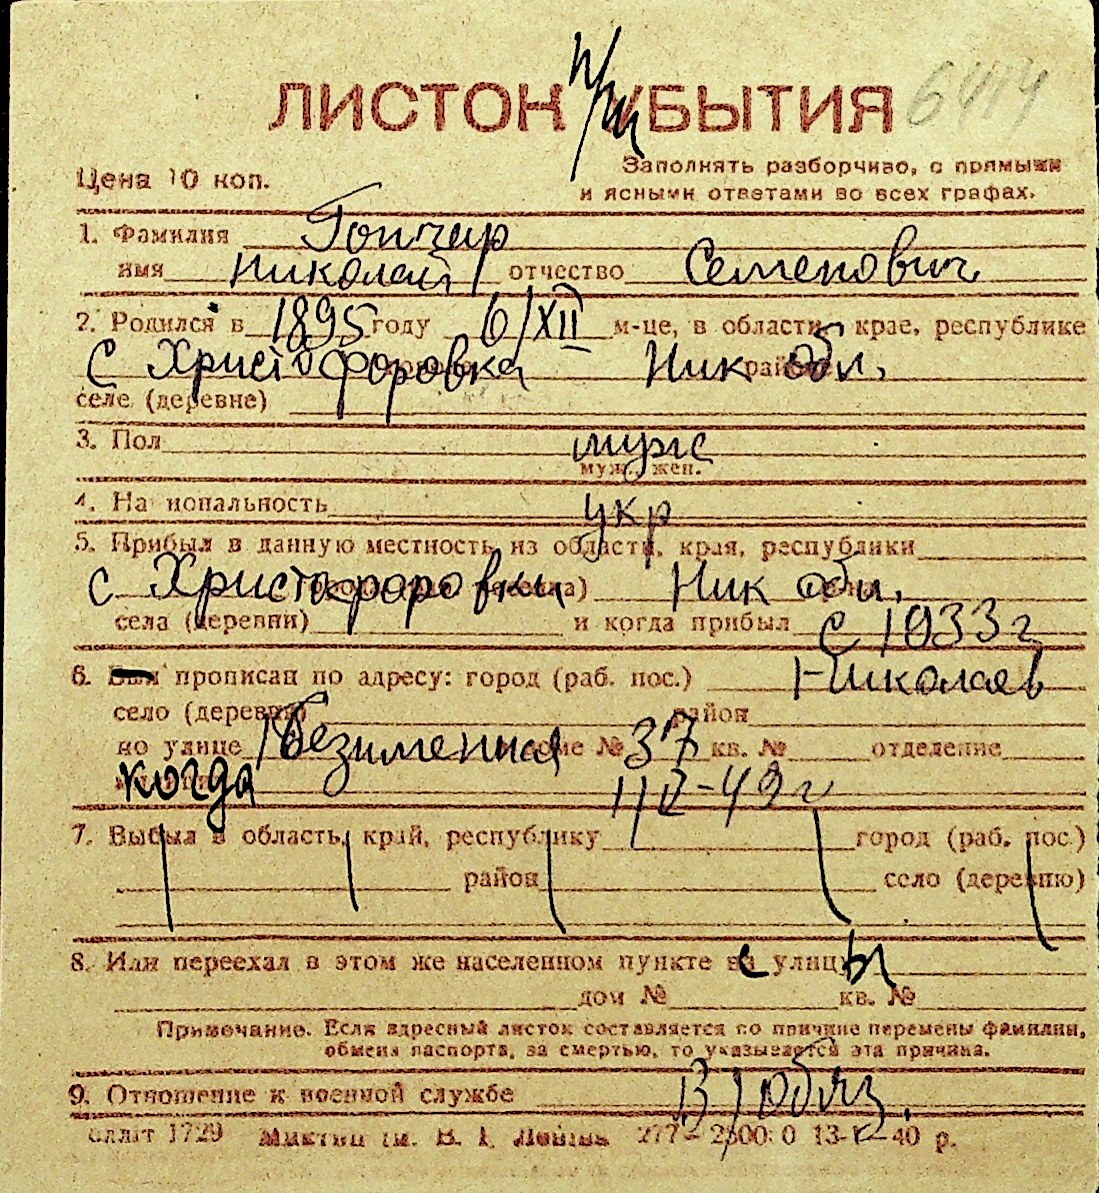 ЛИСТОК УБЫТИЯ
Цена 10 коп.
Заполнять разборчиво, с прямыми
и ясными ответами во всех графах.
1. Фамилия Гончар
имя Николай отчество Семенович
2. Родился в 1895 году 6/XII м-це, в области, крае, республике
С Христофоровка Ник обл.
селе (деревне)
3. Пол муж
муж., жен.
4. Национальность укр
5. Прибыл в данную местность из области, края, республики
с Христофоровки Ник обл.
села (деревни) и когда прибыл с 1933 г
6. Был прописан по адресу: город (раб. пос.) Николаев
село (деревня) район
по улице Безименная доме № 37 кв. № отделение
когда 49 г
7. Выбыл в область, край, республику город (раб. пос.)
район село (деревню)
8. Или переехал в этом же населенном пункте с улицы
дом № кв. №
Примечание. Если адресный листок составляется по причине перемены фамилии,
обмена паспорта, за смертью, то указывается эта причина.
9. Отношение к военной службе В/обяз.
1729 им. В. І. Леніна 277 13- 40 р.